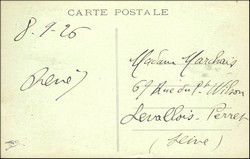 CARTE POSTALE
8-9-26
René
Madame Marchais
67 Rue du Pt Wilson
Levallois-Perret
(Seine)